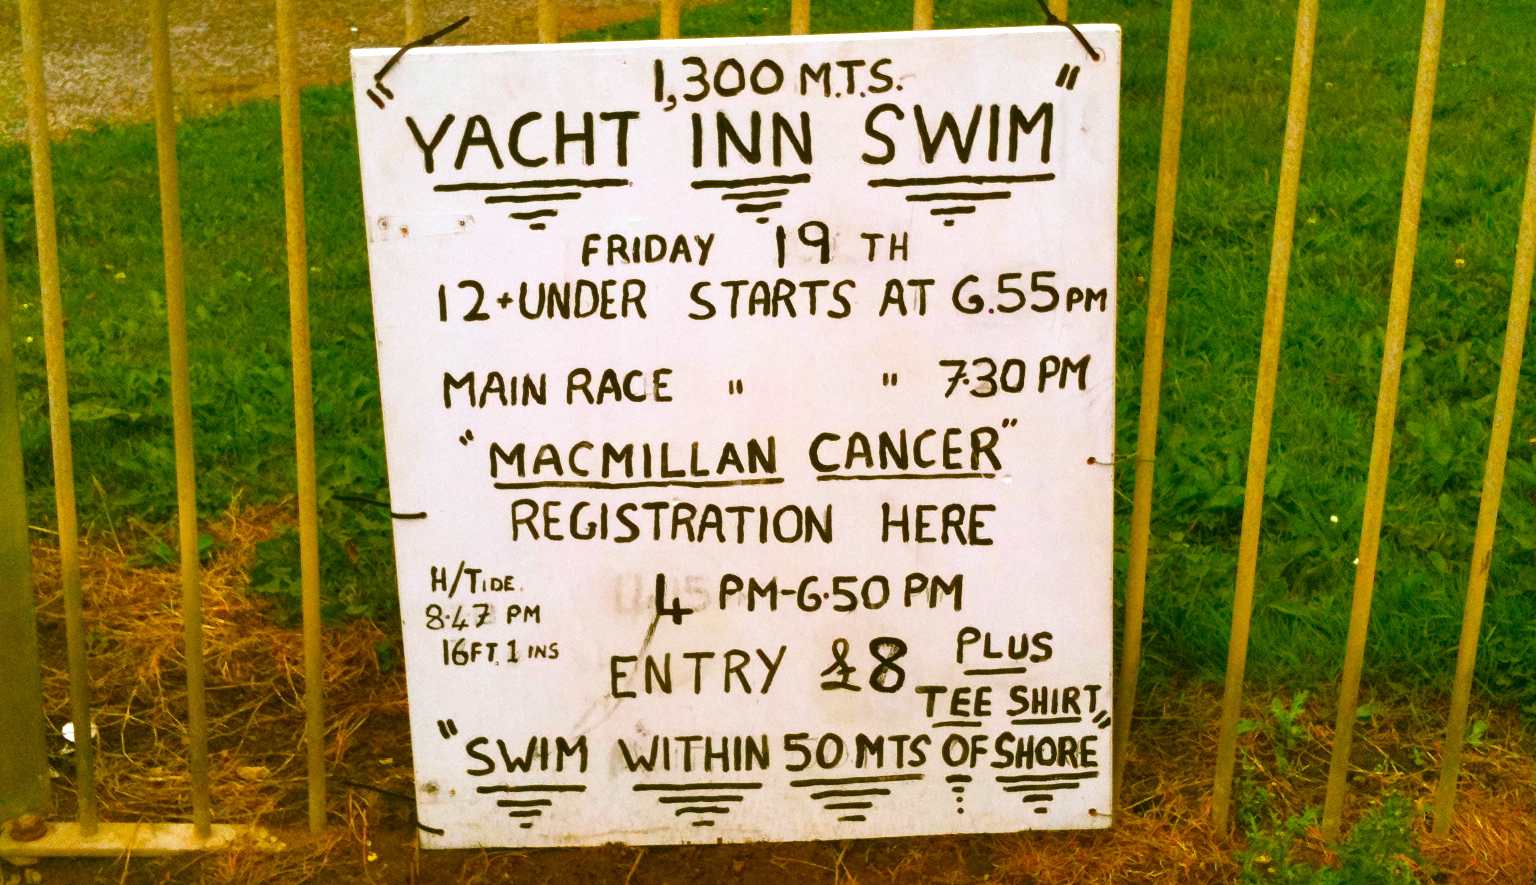 1,300 M.T.S.
"YACHT INN SWIM"
FRIDAY 19TH
12+UNDER STARTS AT 6.55PM
MAIN RACE " " 7.30 PM
"MACMILLAN CANCER"
REGISTRATION HERE
4 PM-6.50 PM
H/TIDE.
8.47 PM
16FT. 1 INS
ENTRY £8 PLUS
TEE SHIRT
"SWIM WITHIN 50 MTS OF SHORE"